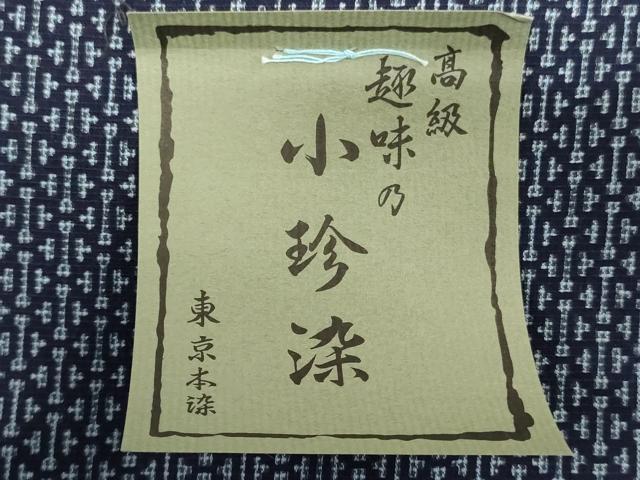 高級
趣味乃
小珍染
東京本染